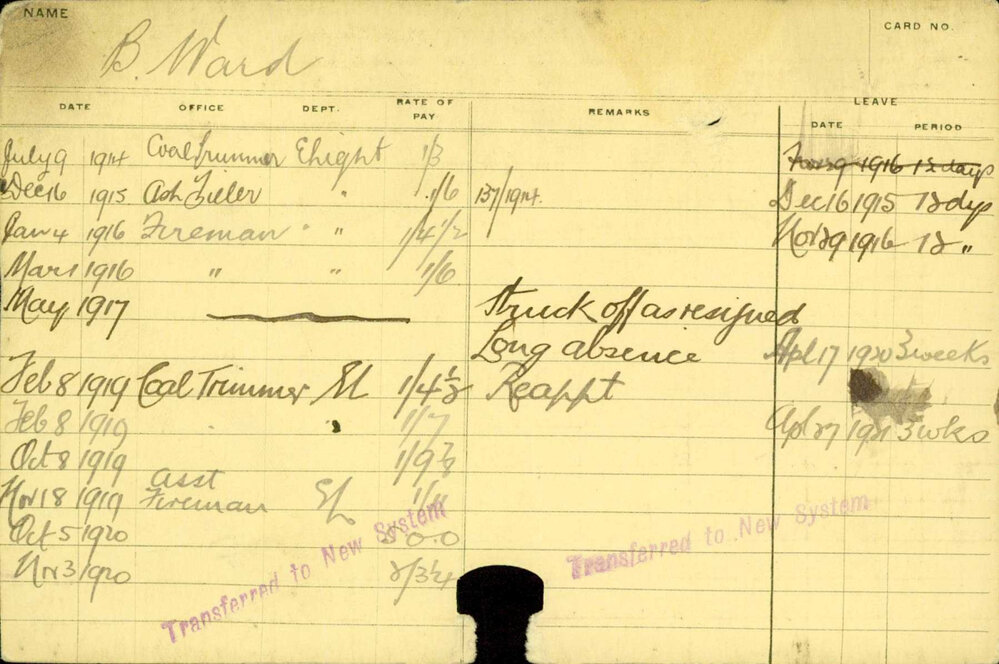 NAME
CARD NO.
B. Ward
DATE OFFICE DEPT. RATE OF PAY REMARKS LEAVE
DATE PERIOD
July 9 1914 Coal Trimmer Elight 1/3 Nov 29 1916 12 days
Dec 16 1915 Ash Filler " 1/6 137/1914. Dec 16 1915 12 dys
Jan 4 1916 Fireman " 1/4 1/2 Nov 29 1916 12 "
Mar 1 1916 " " 1/6
May 1917 Struck off as resigned
Long absence Apl 17 1920 3 weeks
Feb 8 1919 Coal Trimmer EL 1/4 1/2 Reappt
Feb 8 1919 " 1/7 Apl 27 1921 3 wks
Oct 8 1919 1/9
Nov 18 1919 Asst Fireman EL 1/11
Oct 5 1920
Nov 3 1920 2/3 1/4
Transferred to New System
Transferred to New System